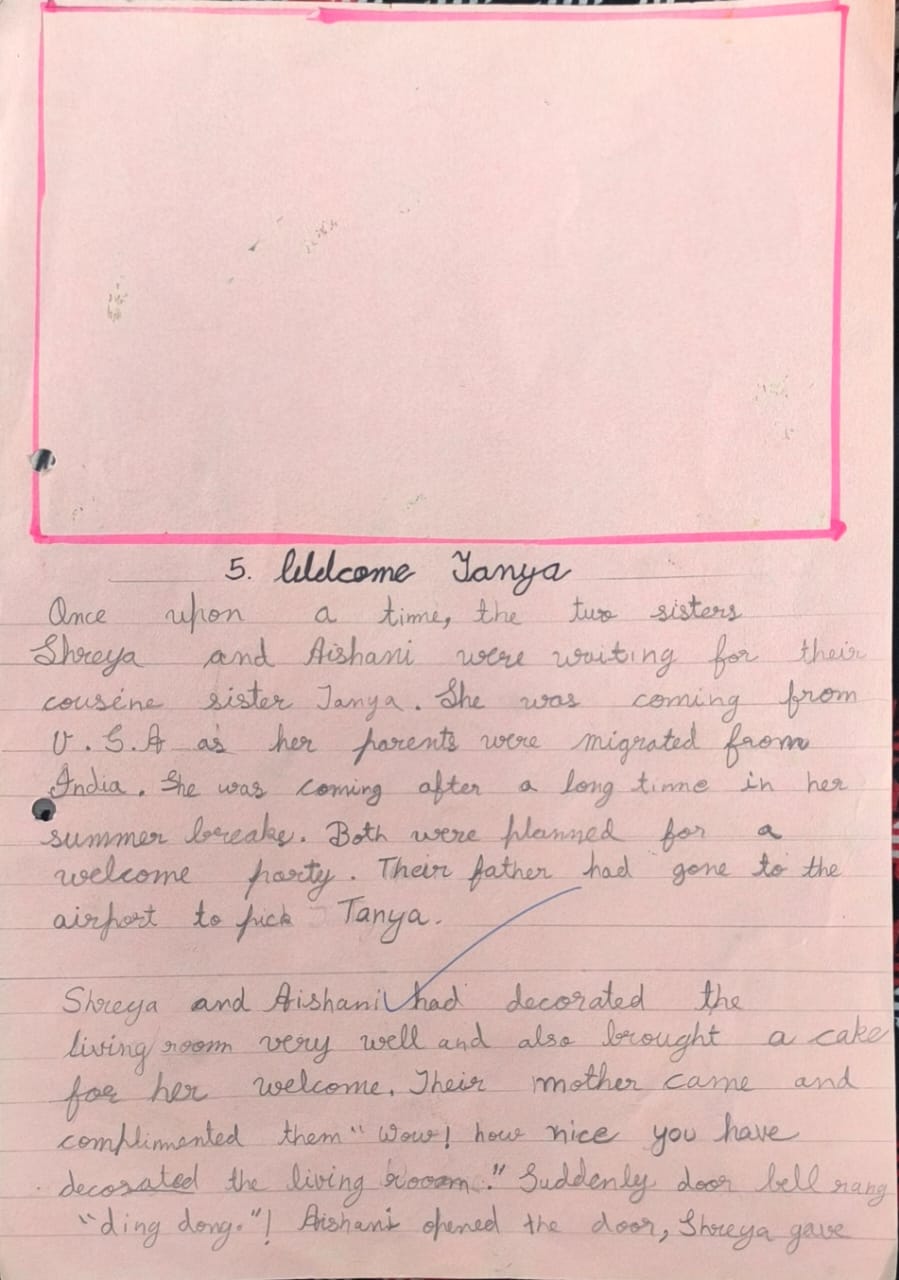 5. Welcome Tanya
Once upon a time, the two sisters
Shreya and Aishani were waiting for their
cousine sister Tanya. She was coming from
U.S.A as her parents were migrated from
India. She was coming after a long time in her
summer breake. Both were planned for a
welcome party. Their father had gone to the
airport to pick Tanya.
Shreya and Aishani had decorated the
living room very well and also brought a cake
for her welcome. Their mother came and
complimented them "Wow! how nice you have
decorated the living room." Suddenly door bell rang
"ding dong."! Aishani opened the door, Shreya gave